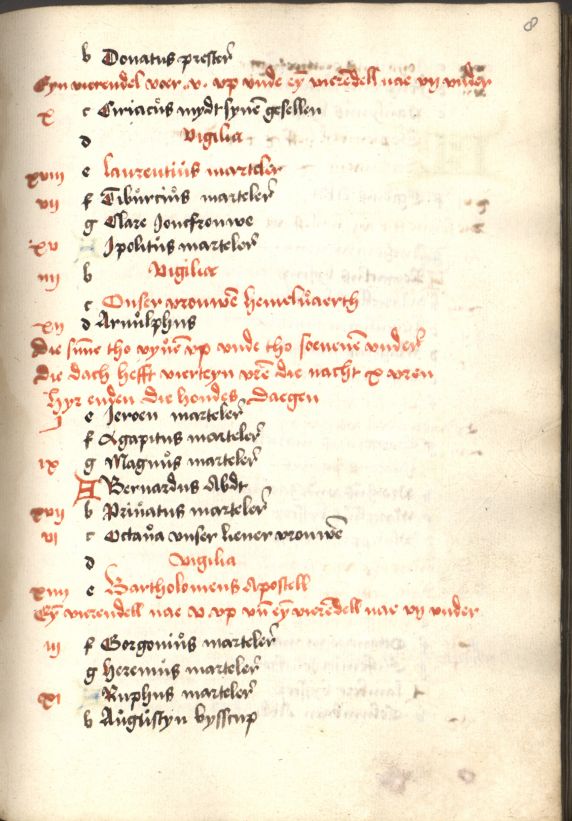 8
b Donatus prester
Eyn vierendel voer .v. vp vnde eyn vierendell nae vij vnder
x c Ciriacus mydt synen gesellen
d Vigilia
xviij e Laurentius marteler
vij f Tiburcius marteler
g Clare Joncfrouwe
xv A Ipolitus marteler
iiij b Vigilia
c Onser vrouwen hemeluaerth
xij d Arnulphus
Die sunne tho vyuen vp vnde tho soeuenen vnder
Die dach hefft vierteyn vren die nacht x vren
Hyr enden die hondes daegen
j e Jeroen marteler
f Agapitus marteler
ix g Magnus marteler
A Bernardus Abdt
xvij b Priuatus marteler
vi c Octaua vnser lieuer vrouwen
d Vigilia
xiiij e Bartholomeus Apostell
Eyn vierendell nae v. vp vn eyn vierendell nae vij vnder
iij f Gorgonius marteler
g Heremus marteler
xi A Ruphus marteler
b Augustyn bysscup